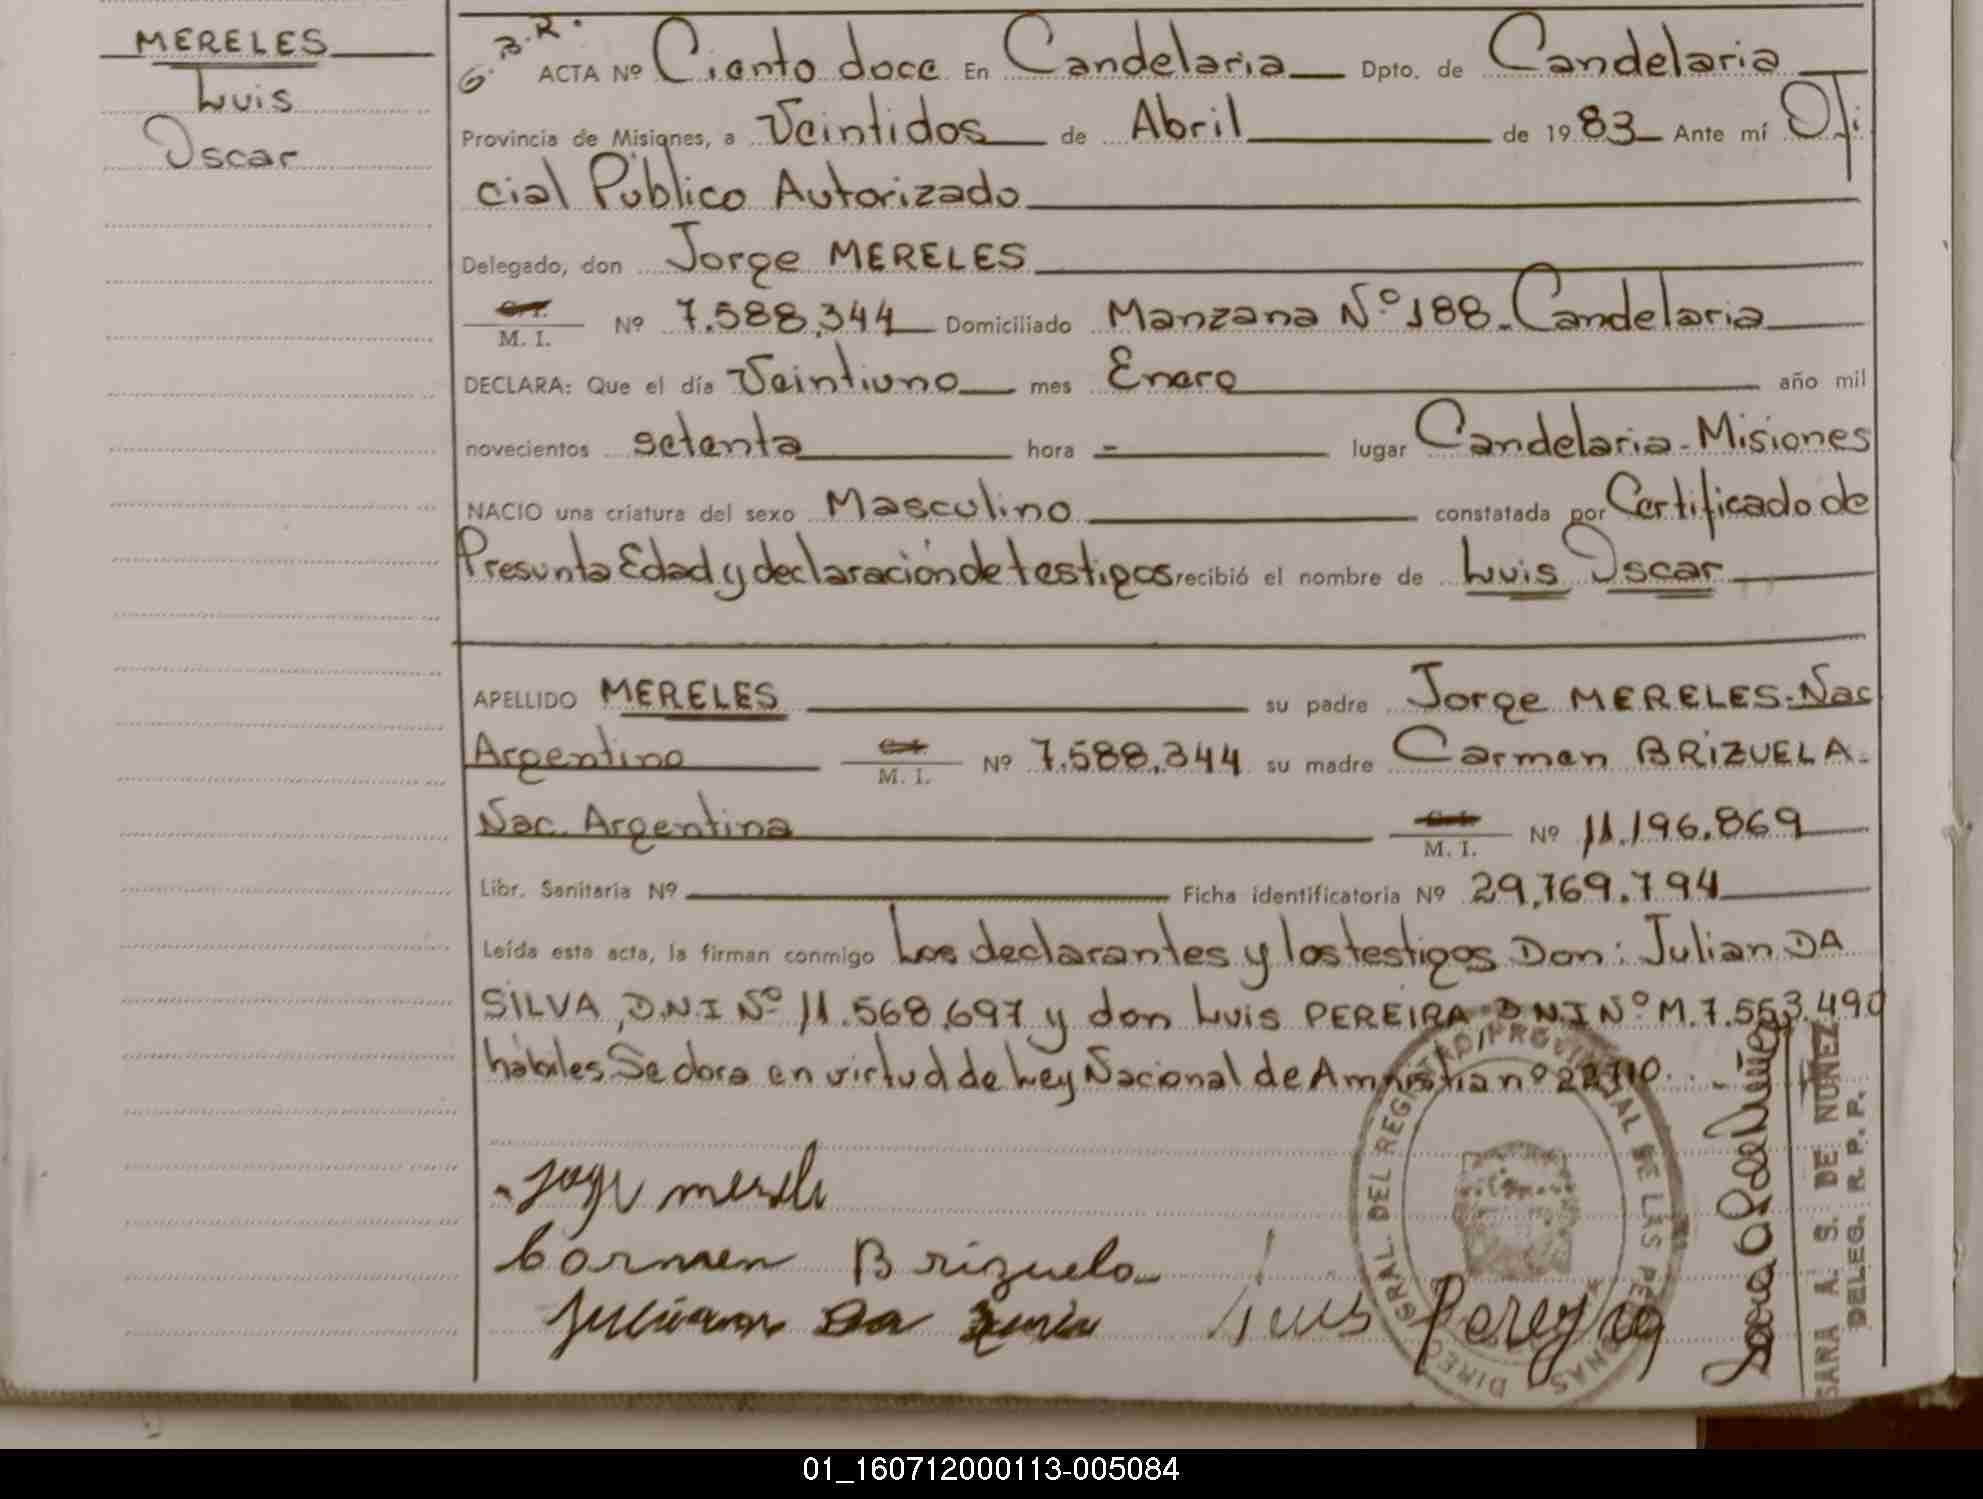 MERELES
Luis
Oscar
G. B. R.
ACTA Nº Ciento doce En Candelaria Dpto. de Candelaria
Provincia de Misiones, a Veintidos de Abril de 1983 Ante mí Ofi
cial Público Autorizado
Delegado, don Jorge MERELES
C. I.
M. I. Nº 7.588.344 Domiciliado Manzana Nº 188. Candelaria
DECLARA: Que el día Veintiuno mes Enero año mil
novecientos setenta hora - lugar Candelaria - Misiones
NACIO una criatura del sexo Masculino constatada por Certificado de
Presunta Edad y declaración de testigos recibió el nombre de Luis Oscar
APELLIDO MERELES su padre Jorge MERELES - Nac
Argentino C. I. M. I. Nº 7.588.344 su madre Carmen BRIZUELA -
Nac. Argentina C. I. M. I. Nº 11.196.869
Libr. Sanitaria Nº Ficha identificatoria Nº 29.769.794
Leída esta acta, la firman conmigo Los declarantes y los testigos Don: Julian DA
SILVA, D.N.I Nº 11.568.697 y don Luis PEREIRA DNI Nº M. 7.553.490
habiles. Se labra en virtud de Ley Nacional de Amnistia nº
Jorge Mereles
Carmen Brizuela
Julian Da Silva Luis Pereyra
DIREC. GRAL. DEL REGISTRO PROVINCIAL DE LAS PERSONAS
SARA A. S. DE NUÑEZ
DELEG. R. P. P.
01_160712000113-005084